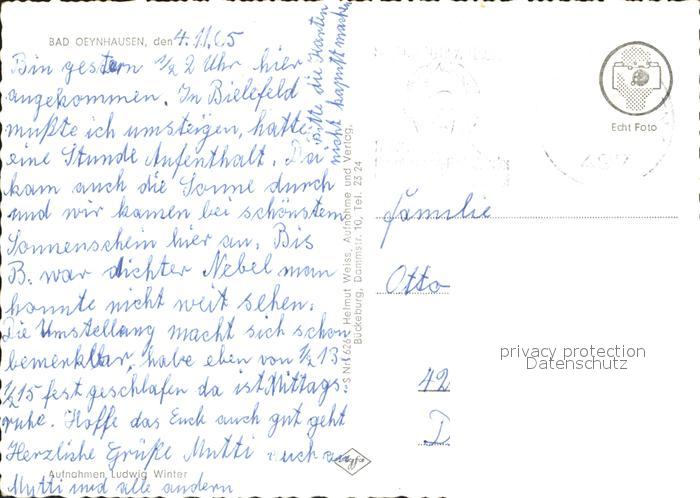 BAD OEYNHAUSEN, den 4.11.65
Bin gestern 1/2 2 Uhr hier
angekommen. In Bielefeld
mußte ich umsteigen, hatte
eine Stunde Aufenthalt. Da
kam auch die Sonne durch
und wir kamen bei schönstem
Sonnenschein hier an. Bis
B. war dichter Nebel man
konnte nicht weit sehen.
Die Umstellung macht sich schon
bemerkbar, habe eben von 1/2 13-
1/2 15 fest geschlafen da ist Mittags-
ruhe. Hoffe das Euch auch gut geht
Herzliche Grüße Mutti auch an
Mytti und alle andern
Aufnahmen Ludwig Winter
Bitte die Karten
nicht kaputt machen
Helmut Weiss, Aufnahme und Verlag,
Bückeburg, Dammstr. 10, Tel. 23 24
Echt Foto
Familie
Otto
privacy protection
Datenschutz
42
D